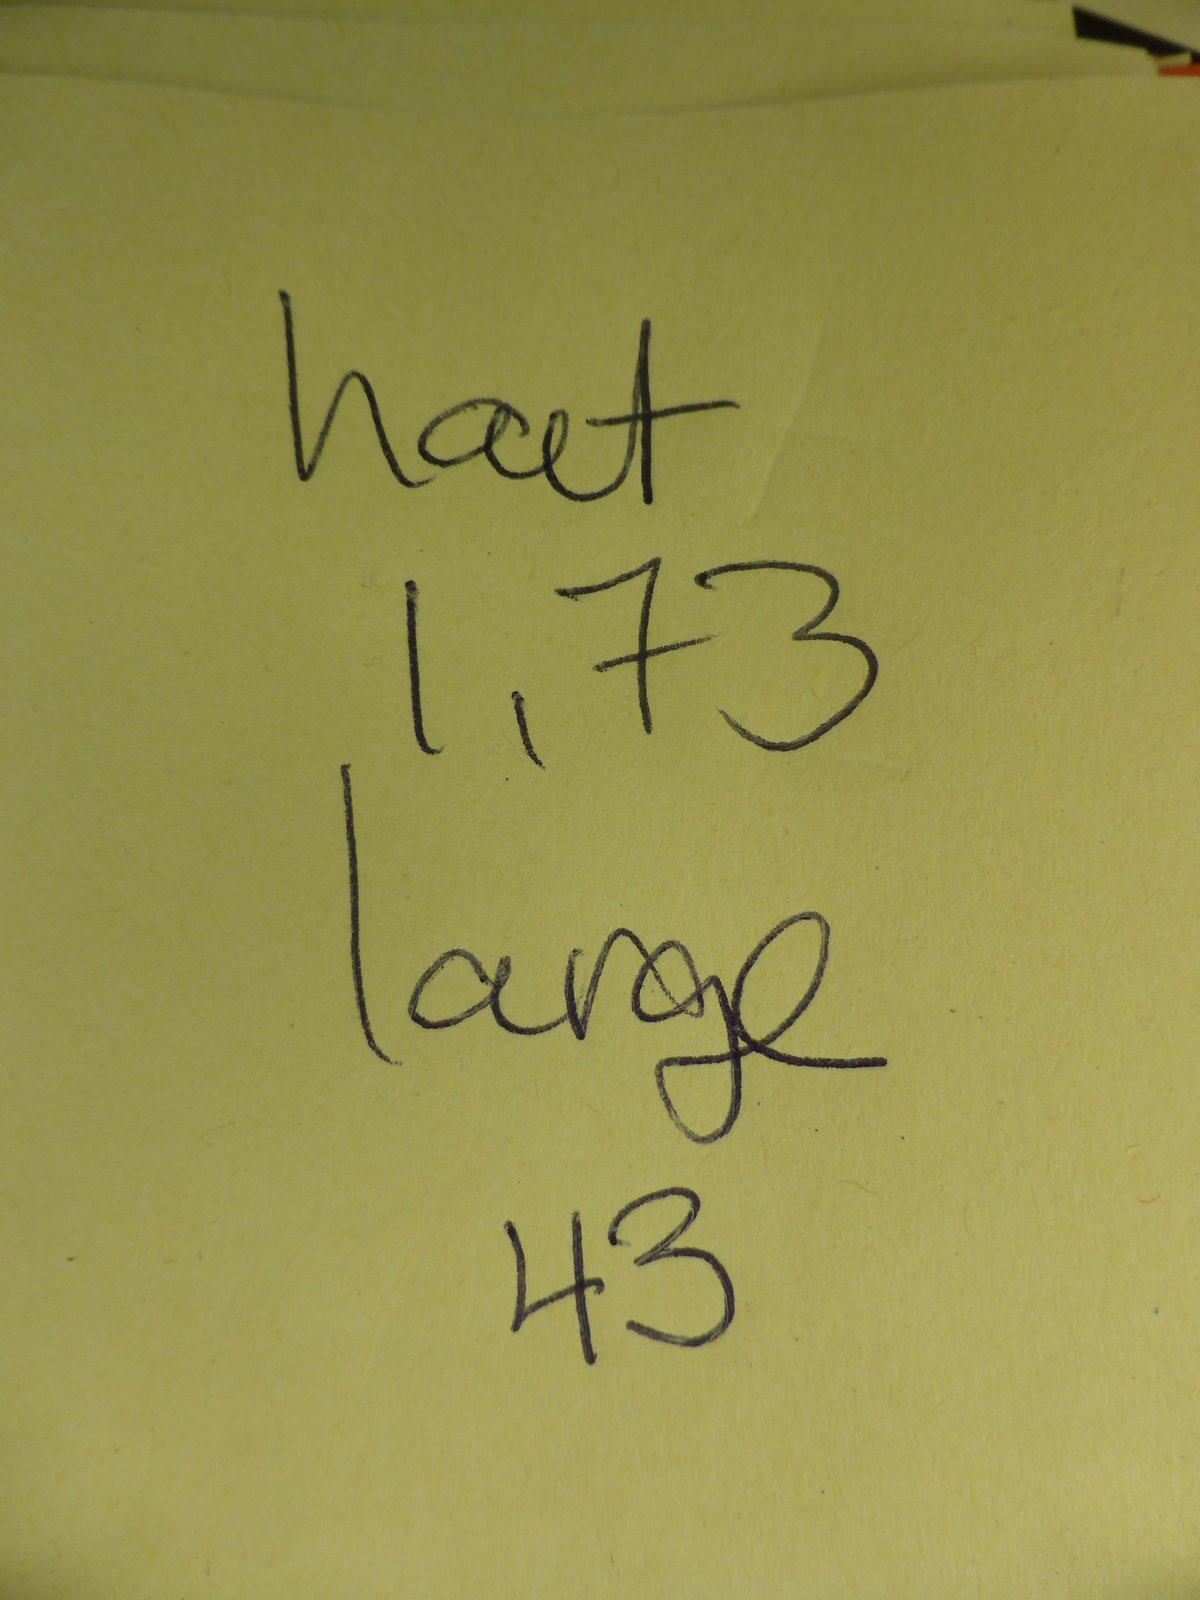 haut
1,73
large
43